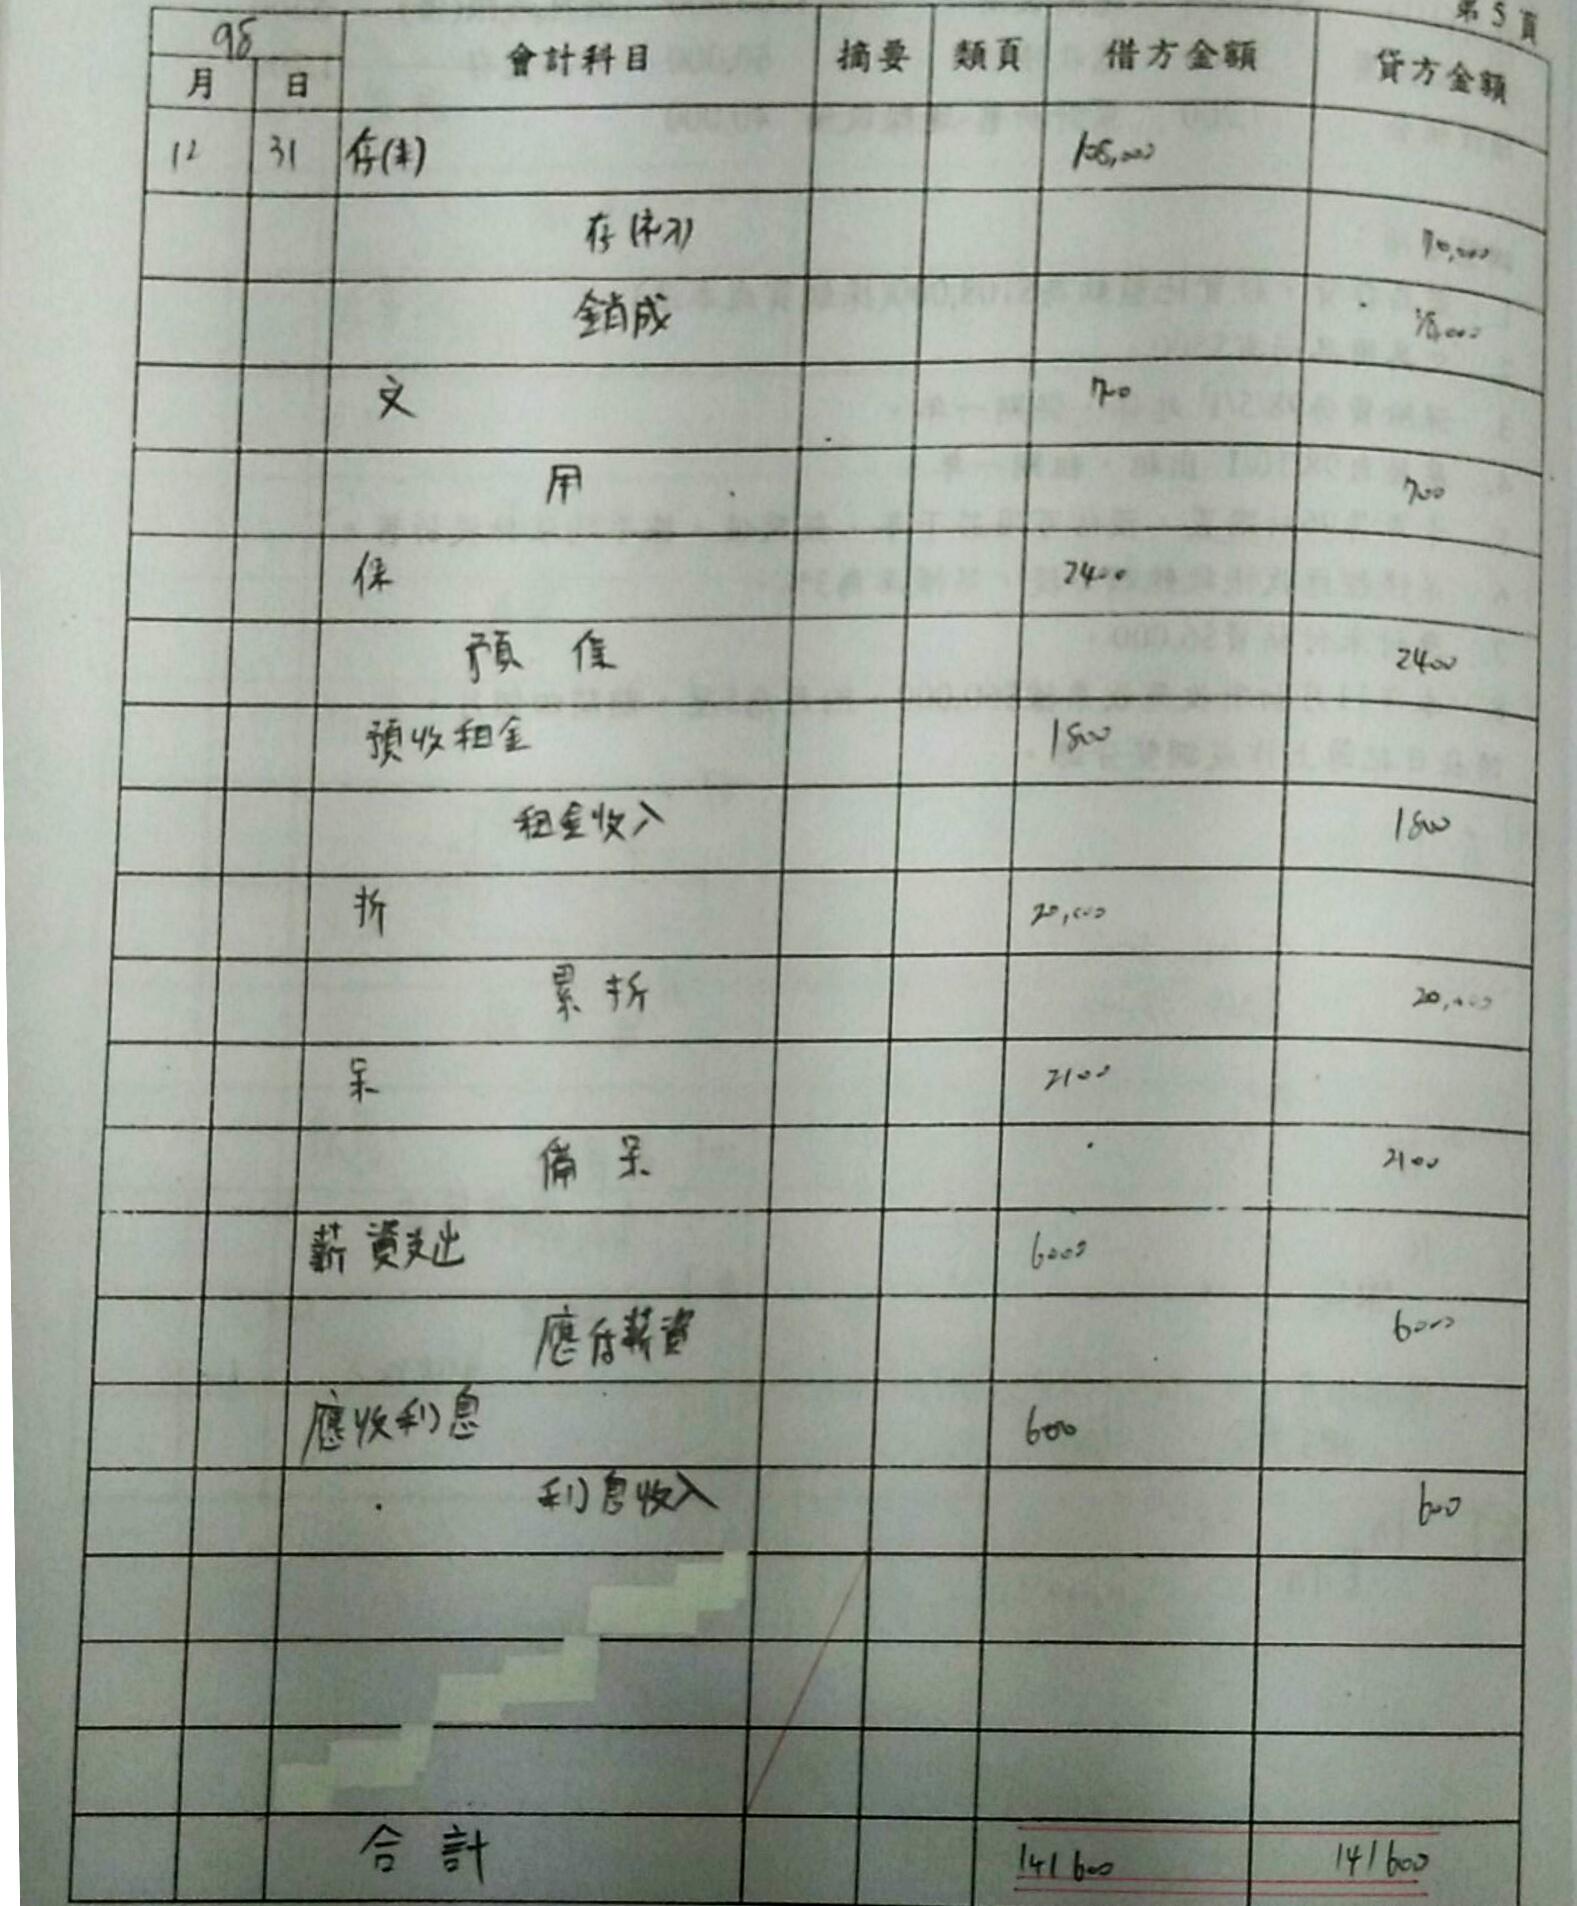 第5頁
98
會計科目 摘要 類頁 借方金額 貸方金額
月 日
12 31 存(末) 108,000
存(初) 70,000
銷成 38,000
文 700
用 700
保 2400
預 保 2400
預收租金 1800
租金收入 1800
折 20,000
累 折 20,000
呆 2100
備 呆 2100
薪資支出 6000
應付薪資 6000
應收利息 600
利息收入 600
合計 141600 141600